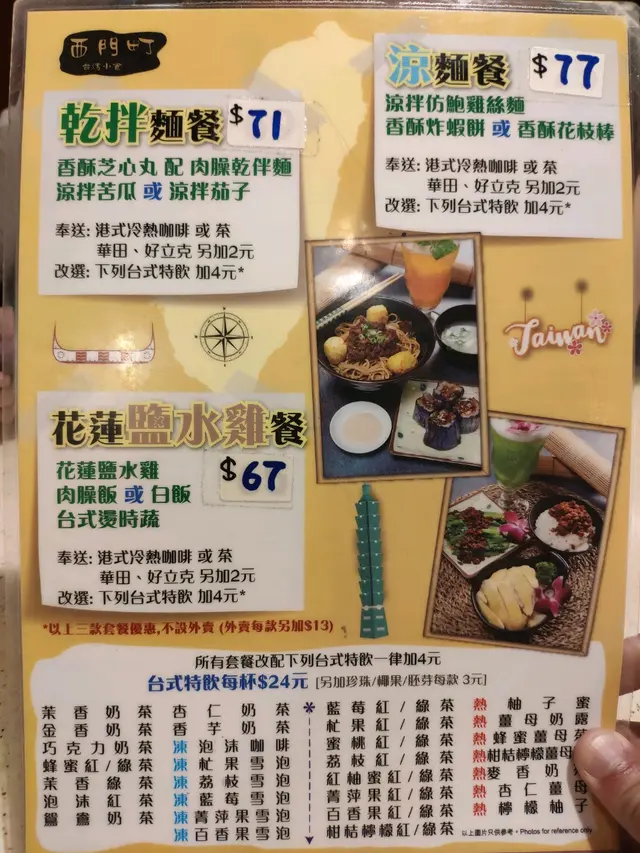 西門町
台灣小食
乾拌麵餐 $71
香酥芝心丸 配 肉臊乾伴麵
涼拌苦瓜 或 涼拌茄子
奉送: 港式冷熱咖啡 或 茶
華田、好立克 另加2元
改選: 下列台式特飲 加4元*
涼麵餐 $77
涼拌仿鮑雞絲麵
香酥炸蝦餅 或 香酥花枝棒
奉送: 港式冷熱咖啡 或 茶
華田、好立克 另加2元
改選: 下列台式特飲 加4元*
Taiwan
花蓮鹽水雞餐
$67
花蓮鹽水雞
肉臊飯 或 白飯
台式燙時蔬
奉送: 港式冷熱咖啡 或 茶
華田、好立克 另加2元
改選: 下列台式特飲 加4元*
*以上三款套餐優惠,不設外賣 (外賣每款另加$13)
所有套餐改配下列台式特飲一律加4元
台式特飲每杯$24元 [另加珍珠/椰果/胚芽每款 3元]
茉香奶茶
金香奶茶
巧克力奶茶
蜂蜜紅/綠茶
茉香綠茶
泡沫紅茶
鴛鴦奶茶
杏仁奶茶
香芋奶茶
凍 泡沫咖啡
凍 杧果雪泡
凍 荔枝雪泡
凍 藍莓雪泡
凍 菁萍果雪泡
凍 百香果雪泡
*
藍莓紅/綠茶
杧果紅/綠茶
蜜桃紅/綠茶
荔枝紅/綠茶
紅柚蜜紅/綠茶
菁萍果紅/綠茶
百香果紅/綠茶
柑桔檸檬紅/綠茶
熱 柚子蜜
熱 薑母奶露
熱 蜂蜜薑母茶
熱 柑桔檸檬薑母
熱 麥香奶
熱 杏仁薑母
熱 檸檬柚子
以上圖片只供參考。Photos for reference only